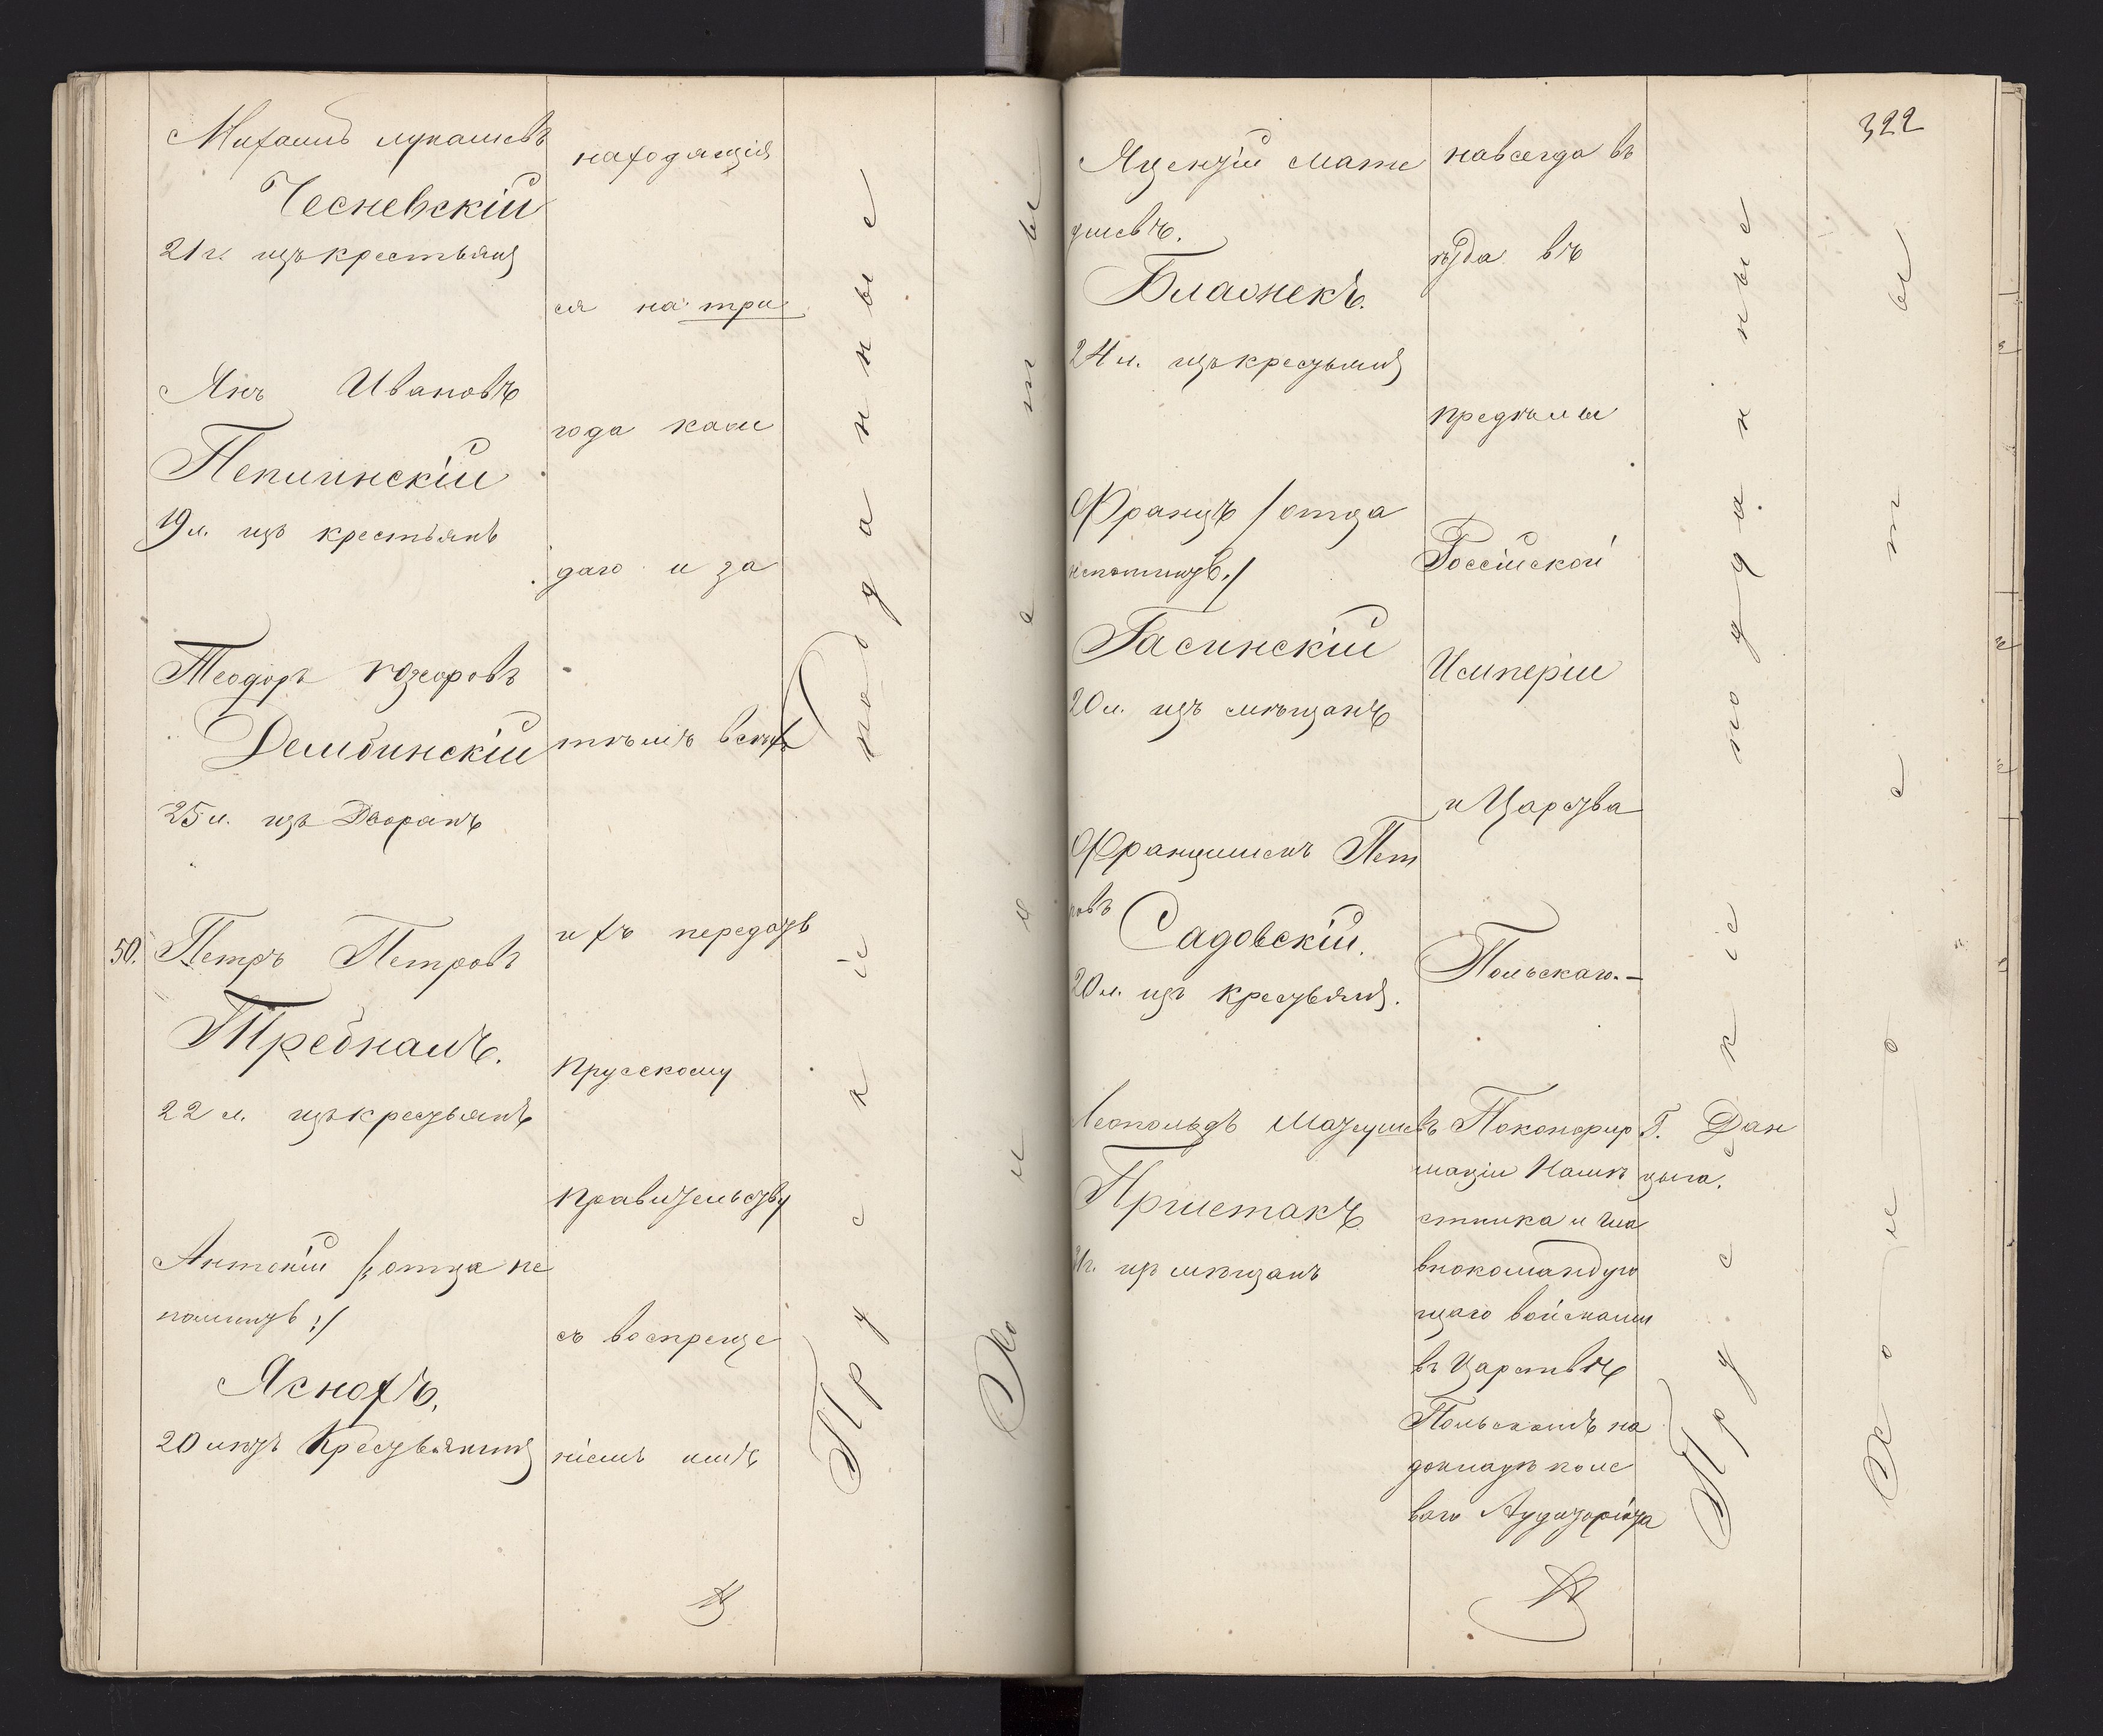 Михаилъ Лукашевъ
Чесневскій
21 г. изъ крестьянъ
Янъ Ивановъ
Пепшинскій
19 л. изъ крестьянъ
Теодоръ
Дембинскій
25 л. изъ Дворянъ
50. Петръ Петровъ
Требнамъ.
22 л. изъ крестьянъ
Антоній /: отца не
помнитъ :/
Яснохъ.
20 лѣтъ Крестьянинъ
находящій
ся на три
года каж
даго и за
тѣмъ всѣхъ
ихъ передать
Прусскому
Правительству
съ воспреще
ніемъ имъ
Прусскіе подданные
Холосты
322
Яцентій Мате
ушевъ.
Блаонекъ.
24 л. изъ крестьянъ
Францъ /отца
непомнитъ./
Гасинскій
20 л. изъ мѣщанъ
Францишекъ Пет
ровъ
Садовскій.
20 л. изъ крестьянъ.
Леопольдъ Матеушевъ
Пршетакъ
21 г. изъ мѣщанъ
навсегда въ
ѣзда въ
предѣлы
Россійской
Имперіи
и Царства
Польскаго.—
По конфир
маціи Намѣ
стника и Гла
внокомандую
щаго войсками
въ Царствѣ
Польскомъ на
докладѣ поле
ваго Аудиторіата
Г. Дан
цыга.
Прусскіе подданные
Холосты